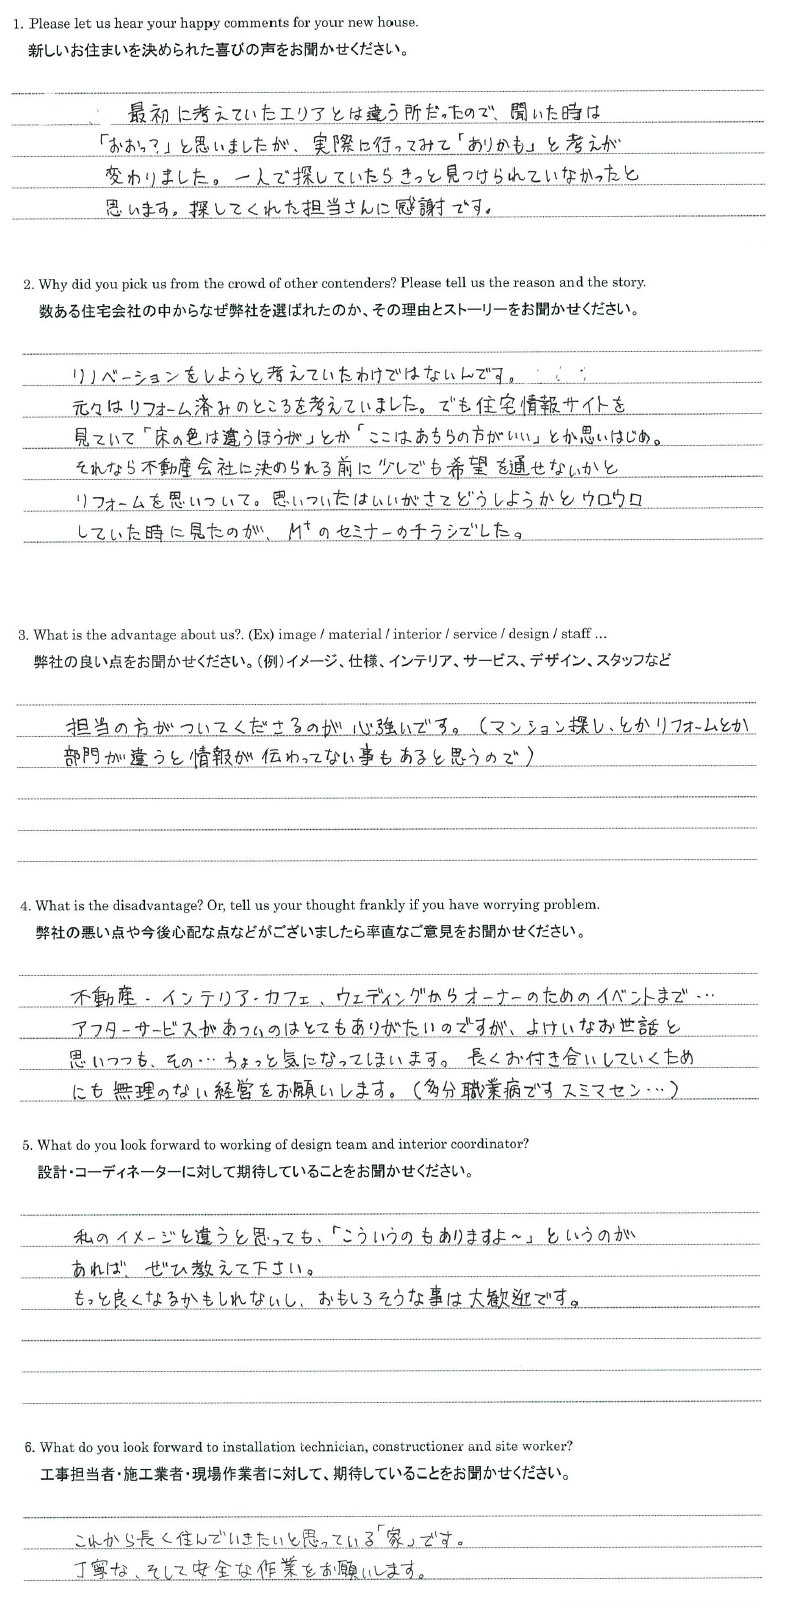 1. Please let us hear your happy comments for your new house.
新しいお住まいを決められた喜びの声をお聞かせください。
最初に考えていたエリアとは違う所だったので、聞いた時は
「おおっ?」と思いましたが、実際に行ってみて「ありかも」と考えが
変わりました。一人で探していたらきっと見つけられていなかったと
思います。探してくれた担当さんに感謝です。
2. Why did you pick us from the crowd of other contenders? Please tell us the reason and the story.
数ある住宅会社の中からなぜ弊社を選ばれたのか、その理由とストーリーをお聞かせください。
リノベーションをしようと考えていたわけではないんです。
元々はリフォーム済みのところを考えていました。でも住宅情報サイトを
見ていて「床の色は違うほうが」とか「ここはあちらの方がいい」とか思いはじめ。
それなら不動産会社に決められる前に少しでも希望を通せないかと
リフォームを思いついて。思いついたはいいがさてどうしようかとウロウロ
していた時に見たのが、M+のセミナーのチラシでした。
3. What is the advantage about us?. (Ex) image / material / interior / service / design / staff ...
弊社の良い点をお聞かせください。(例)イメージ、仕様、インテリア、サービス、デザイン、スタッフなど
担当の方がついてくださるのが心強いです。(マンション探し、とかリフォームとか
部門が違うと情報が伝わってない事もあると思うので)
4. What is the disadvantage? Or, tell us your thought frankly if you have worrying problem.
弊社の悪い点や今後心配な点などがございましたら率直なご意見をお聞かせください。
不動産・インテリア・カフェ、ウェディングからオーナーのためのイベントまで…
アフターサービスがあついのはとてもありがたいのですが、よけいなお世話と
思いつつも、その…ちょっと気になってしまいます。長くお付き合いしていくため
にも無理のない経営をお願いします。(多分職業病ですスミマセン…)
5. What do you look forward to working of design team and interior coordinator?
設計・コーディネーターに対して期待していることをお聞かせください。
私のイメージと違うと思っても、「こういうのもありますよ～」というのが
あれば、ぜひ教えて下さい。
もっと良くなるかもしれないし、おもしろそうな事は大歓迎です。
6. What do you look forward to installation technician, constructioner and site worker?
工事担当者・施工業者・現場作業者に対して、期待していることをお聞かせください。
これから長く住んでいきたいと思っている「家」です。
丁寧な、そして安全な作業をお願いします。